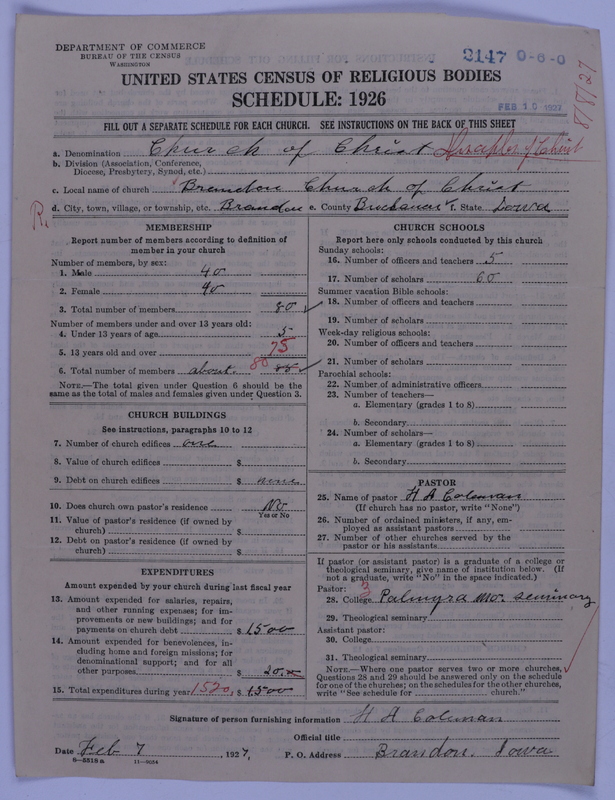 DEPARTMENT OF COMMERCE
BUREAU OF THE CENSUS
WASHINGTON
2147 0-6-0
UNITED STATES CENSUS OF RELIGIOUS BODIES
SCHEDULE: 1926
FEB 10 1927
8/8/27
FILL OUT A SEPARATE SCHEDULE FOR EACH CHURCH. SEE INSTRUCTIONS ON THE BACK OF THIS SHEET
a. Denomination Church of Christ Disciples of Christ
b. Division (Association, Conference,
Diocese, Presbytery, Synod, etc.)
c. Local name of church Brandon Church of Christ
d. City, town, village, or township, etc. Brandon e. County Buchanan f. State Iowa
R.
MEMBERSHIP
Report number of members according to definition of
member in your church
Number of members, by sex:
1. Male 40
2. Female 40
3. Total number of members 80
Number of members under and over 13 years old:
4. Under 13 years of age 5
5. 13 years old and over 75
6. Total number of members about 80 88
NOTE.—The total given under Question 6 should be the
same as the total of males and females given under Question 3.
CHURCH BUILDINGS
See instructions, paragraphs 10 to 12
7. Number of church edifices one
8. Value of church edifices $
9. Debt on church edifices $ none
10. Does church own pastor's residence No
Yes or No
11. Value of pastor's residence (if owned by
church) $
12. Debt on pastor's residence (if owned by
church) $
EXPENDITURES
Amount expended by your church during last fiscal year
13. Amount expended for salaries, repairs,
and other running expenses; for im-
provements or new buildings; and for
payments on church debt $ 1500
14. Amount expended for benevolences, in-
cluding home and foreign missions; for
denominational support; and for all
other purposes $ 20.
15. Total expenditures during year 1520, $ 1500
CHURCH SCHOOLS
Report here only schools conducted by this church
Sunday schools:
16. Number of officers and teachers 5
17. Number of scholars 60
Summer vacation Bible schools:
18. Number of officers and teachers
19. Number of scholars
Week-day religious schools:
20. Number of officers and teachers
21. Number of scholars
Parochial schools:
22. Number of administrative officers
23. Number of teachers—
a. Elementary (grades 1 to 8)
b. Secondary
24. Number of scholars—
a. Elementary (grades 1 to 8)
b. Secondary
PASTOR
25. Name of pastor H A Coleman
(If church has no pastor, write "None")
26. Number of ordained ministers, if any, em-
ployed as assistant pastors
27. Number of other churches served by the
pastor or his assistants
If pastor (or assistant pastor) is a graduate of a college or
theological seminary, give name of institution below. (If
not a graduate, write "No" in the space indicated.)
Pastor: 3
28. College Palmyra Mo. Seminary
29. Theological seminary
Assistant pastor:
30. College
31. Theological seminary
NOTE.—Where one pastor serves two or more churches,
Questions 28 and 29 should be answered only on the schedule
for one of the churches; on the schedules for the other churches,
write "See schedule for church."
Signature of person furnishing information H A Coleman
Official title
Date Feb 7, 1927, P. O. Address Brandon, Iowa
6—5518a 11—9034